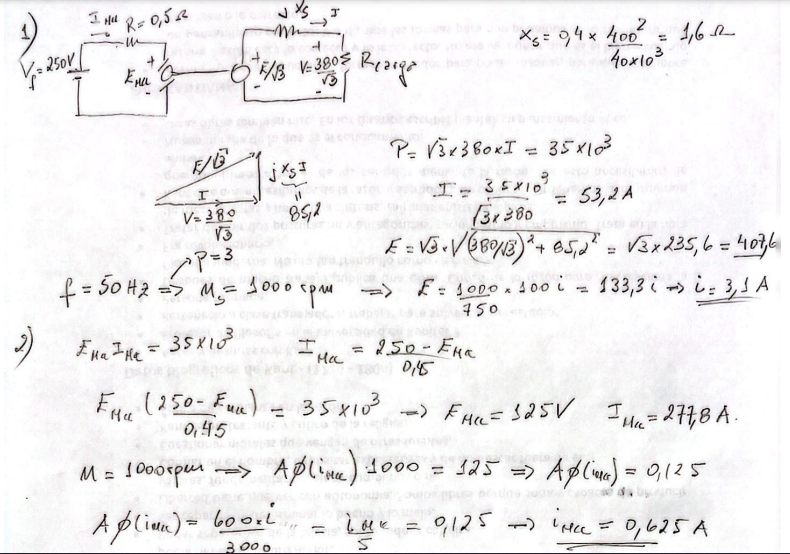 1)
I_Ma R=0,5 Ω
V_f=250V
E_Ma
+
-
jXs → I
+
-
E/√3
V=380/√3
R carga
Xs = 0,4 x 400²/40x10³ = 1,6 Ω
P = √3 x 380 x I = 35x10³
E/√3
jXsI
I
V=380/√3
85,2
I = 35x10³/√3x380 = 53,2 A
E = √3 x √(380/√3)² + 85,2² = √3 x 235,6 = 407,6
P=3
f = 50 Hz ⇒ M_s = 1000 rpm ⇒ E = 1000/750 x 100 i = 133,3 i → i = 3,1 A
2)
E_Ma I_Ma = 35x10³ I_Ma = 250 - E_Ma/0,45
E_Ma (250 - E_Ma/0,45) = 35x10³ → E_Ma = 125V I_Ma = 277,8 A.
M = 1000 rpm ⇒ Aφ(i_Ma) 1000 = 125 ⇒ Aφ(i_Ma) = 0,125
Aφ(i_Ma) = 600 x i/3000 = i_Ma/5 = 0,125 → i_Ma = 0,625 A